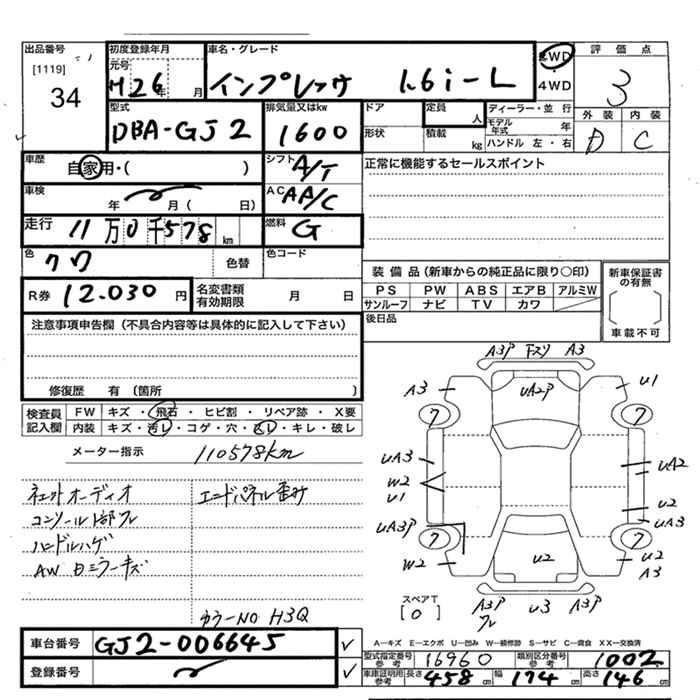 出品番号 初度登録年月 車名・グレード 2WD 評価点
[1119] 元号 H26年 月 インプレッサ 1.6i-L ・ 3
34 4WD
型式 排気量又はkw ドア 定員 人 ディーラー・並行 外装 内装
DBA-GJ2 1600 形状 積載 kg モデル年式 年 D C
ハンドル 左・右
車歴 自家用・( ) シフト A/T 正常に機能するセールスポイント
車検 年 月( 日) AC AA/C
走行 11万0千578km 燃料 G
色 クロ 色替 色コード
装備品(新車からの純正品に限り○印) 新車保証書の有無
R券 12.030円 名変書類有効期限 月 日 PS PW ABS エアB アルミW
サンルーフ ナビ TV カワ 〔 〕
注意事項申告欄(不具合内容等は具体的に記入して下さい) 後日品 車載不可
修復歴 有(箇所 )
検査員記入欄 FW キズ・飛石・ヒビ割・リペア跡・X要
内装 キズ・汚レ・コゲ・穴・スレ・キレ・破レ
メーター指示 110578km
ネットオーディオ エンドパネル歪み
コンソール
ハンドルハゲ
AW ミラーキズ
カラーNO H3Q
A3P 下スリ A3
A3 UA2P U1
7 7
UA3 UA2
W2
U1 U2
UA3P UA3
7 7
W2 U2 U2
A3
スペアT A3P U3 A3P
[0]
車台番号 GJ2-006645 ✓
登録番号 ✓
A-キズ E-エクボ U-凹み W-補修跡 S-サビ C-腐食 XX-交換済
型式指定番号参考 16960 類別区分番号参考 1002
車庫証明用参考 長さ 458cm 幅 174cm 高さ 146cm